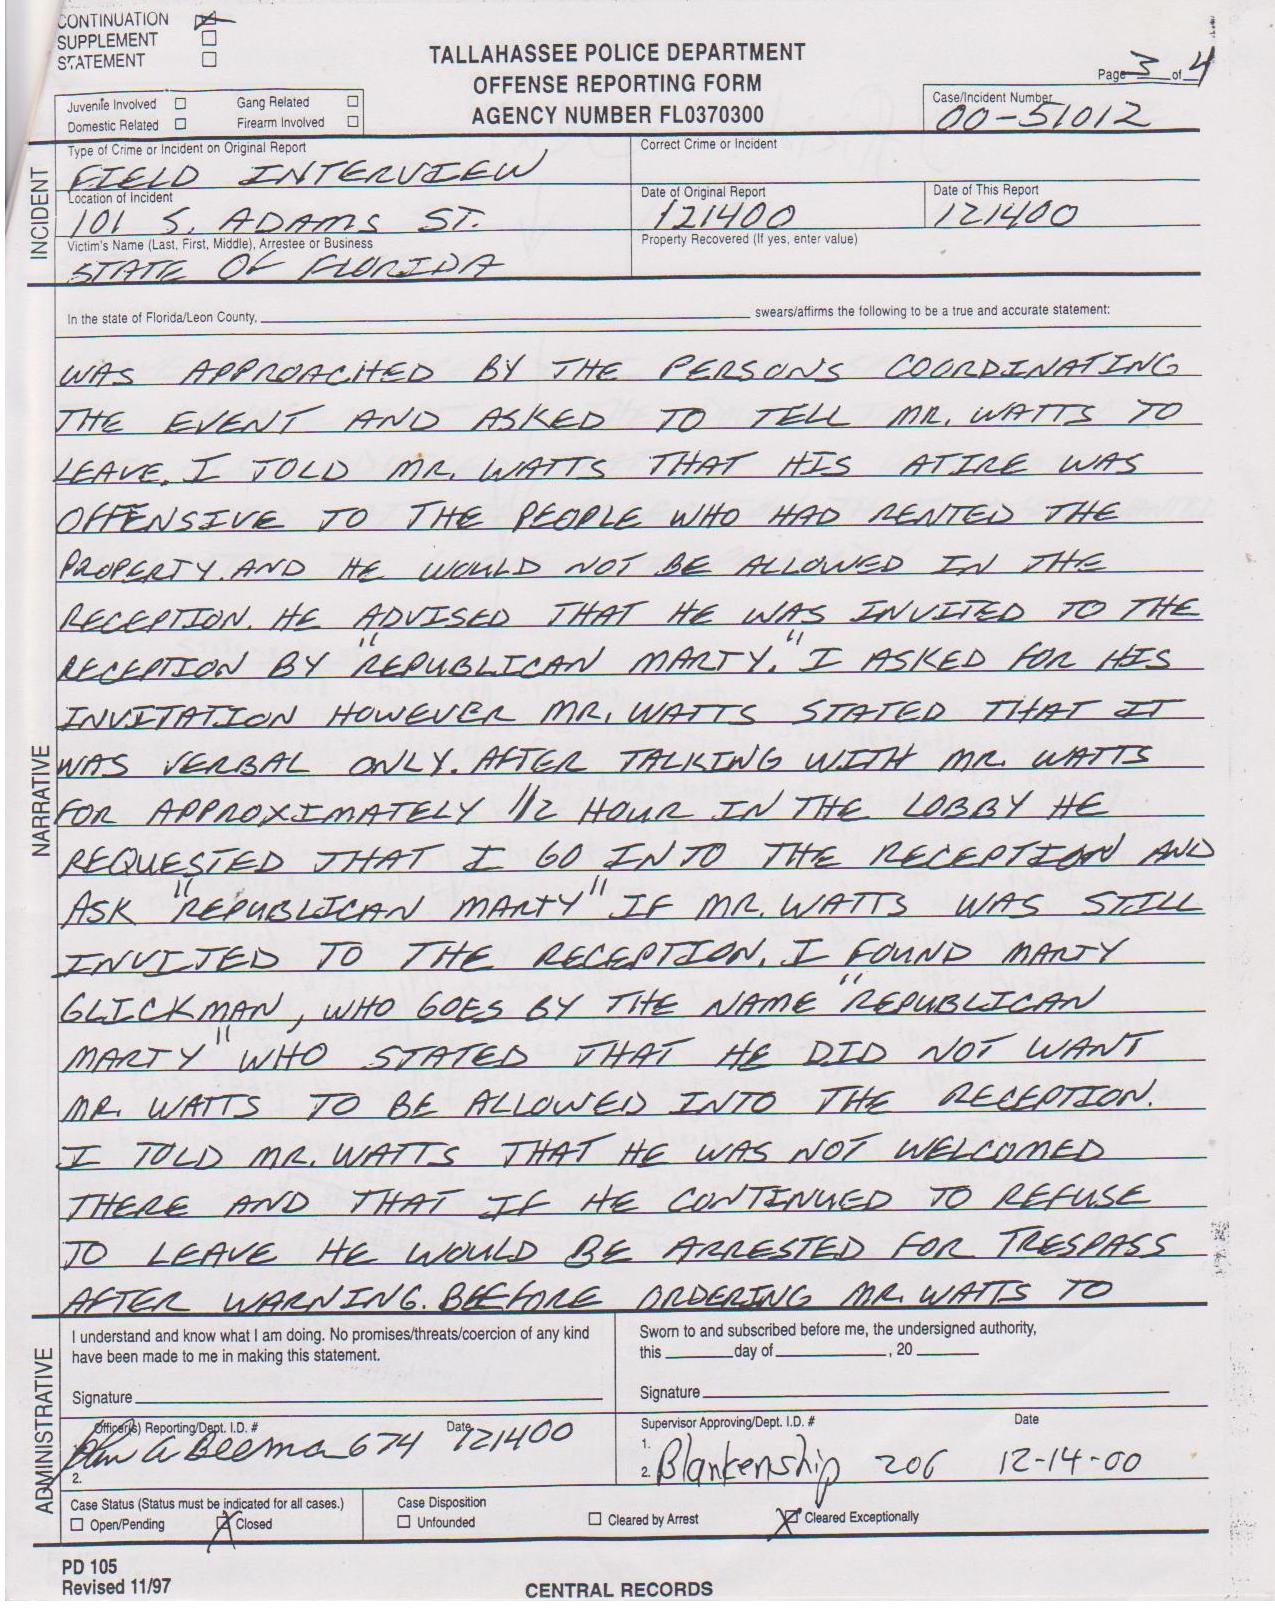 CONTINUATION
SUPPLEMENT
STATEMENT
TALLAHASSEE POLICE DEPARTMENT
OFFENSE REPORTING FORM
AGENCY NUMBER FL0370300
Page 3 of 4
Juvenile Involved Gang Related
Domestic Related Firearm Involved
Case/Incident Number
00-51012
INCIDENT
Type of Crime or Incident on Original Report
FIELD INTERVIEW
Correct Crime or Incident
Location of Incident
101 S. ADAMS ST.
Date of Original Report
121400
Date of This Report
121400
Victim's Name (Last, First, Middle), Arrestee or Business
STATE OF FLORIDA
Property Recovered (If yes, enter value)
In the state of Florida/Leon County, swears/affirms the following to be a true and accurate statement:
NARRATIVE
WAS APPROACHED BY THE PERSONS COORDINATING
THE EVENT AND ASKED TO TELL MR. WATTS TO
LEAVE. I TOLD MR. WATTS THAT HIS ATIRE WAS
OFFENSIVE TO THE PEOPLE WHO HAD RENTED THE
PROPERTY. AND HE WOULD NOT BE ALLOWED IN THE
RECEPTION. HE ADVISED THAT HE WAS INVITED TO THE
RECEPTION BY "REPUBLICAN MARTY." I ASKED FOR HIS
INVITATION HOWEVER MR. WATTS STATED THAT IT
WAS VERBAL ONLY. AFTER TALKING WITH MR. WATTS
FOR APPROXIMATELY 1/2 HOUR IN THE LOBBY HE
REQUESTED THAT I GO INTO THE RECEPTION AND
ASK "REPUBLICAN MARTY" IF MR. WATTS WAS STILL
INVITED TO THE RECEPTION. I FOUND MARTY
GLICKMAN, WHO GOES BY THE NAME "REPUBLICAN
MARTY" WHO STATED THAT HE DID NOT WANT
MR. WATTS TO BE ALLOWED INTO THE RECEPTION.
I TOLD MR. WATTS THAT HE WAS NOT WELCOMED
THERE AND THAT IF HE CONTINUED TO REFUSE
TO LEAVE HE WOULD BE ARRESTED FOR TRESPASS
AFTER WARNING. BEFORE ORDERING MR. WATTS TO
ADMINISTRATIVE
I understand and know what I am doing. No promises/threats/coercion of any kind
have been made to me in making this statement.
Signature
Sworn to and subscribed before me, the undersigned authority,
this day of , 20
Signature
Officer(s) Reporting/Dept. I.D. # Date
John A Beeman 674 121400
2.
Supervisor Approving/Dept. I.D. # Date
1.
2. Blankenship 206 12-14-00
Case Status (Status must be indicated for all cases.)
Open/Pending Closed
Case Disposition
Unfounded Cleared by Arrest Cleared Exceptionally
PD 105
Revised 11/97
CENTRAL RECORDS